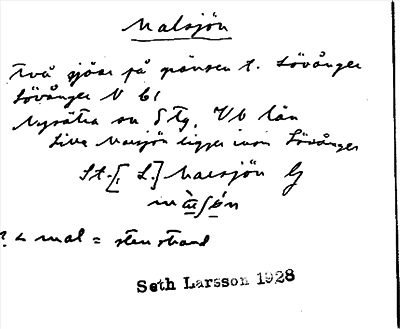 Malsjön
två sjöar på gränsen t. Lövånger
Lövånger N b1
Nysätra sn Stg, Vb län
Lilla Malsjön ligger inom Lövånger
St.[, L.] Malsjön G
? < mal = stenstrand
Seth Larsson 1928